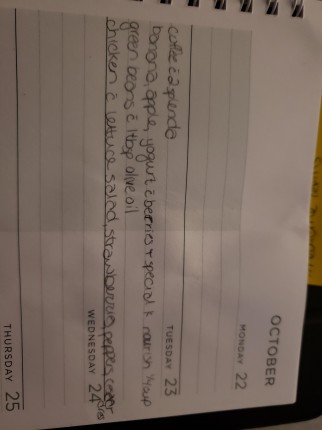 OCTOBER
MONDAY 22
TUESDAY 23
coffee c̄ 2 splenda
banana, apple, yogurt c̄ berries + special k nourish 1/2 cup
green beans c̄ 1 tbsp olive oil
chicken c̄ lettuce salad, strawberries, pepper,
WEDNESDAY 24
THURSDAY 25